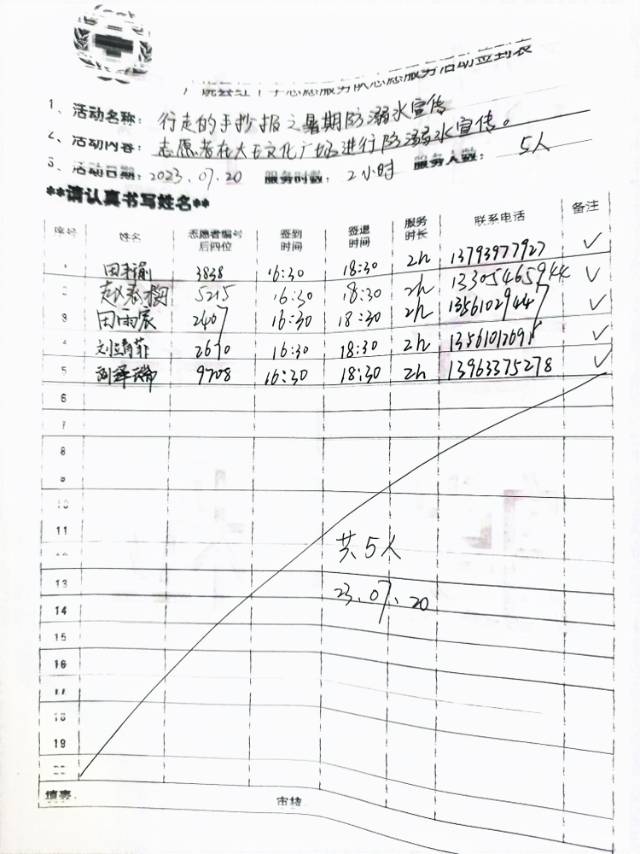 广饶县红十字志愿服务队志愿服务活动签到表
1、活动名称: 行走的手抄报之暑期防溺水宣传
2、活动内容: 志愿者在大王文化广场进行防溺水宣传。
3、活动日期: 2023.07.20 服务时数: 2小时 服务人数: 5人
**请认真书写姓名**
序号 姓名 志愿者编号后四位 签到时间 签退时间 服务时长 联系电话 备注
1 3838 16:30 18:30 2h 13793977927 ✓
2 5215 16:30 18:30 2h 13305465944 ✓
3 田雨宸 2407 16:30 18:30 2h 13561029447 ✓
4 2670 16:30 18:30 2h ✓
5 9708 16:30 18:30 2h 13963375278 ✓
6
7
8
9
10
11
共5人
12
13
23.07.20
14
15
16
17
18
19
20
填表: 审核